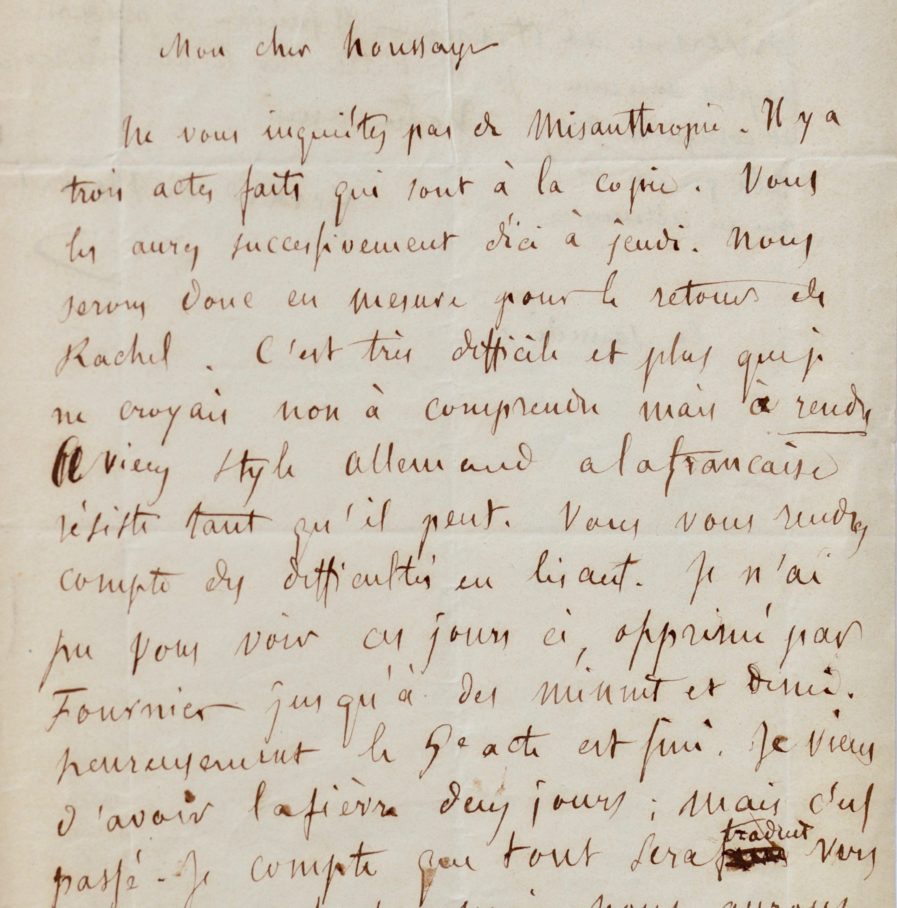 Mon cher Houssaye
Ne vous inquiétez pas de Misanthropie. Il y a
trois actes faits qui sont à la copie. Vous
les aurez successivement d'ici à jeudi. Nous
serons donc en mesure pour le retour de
Rachel. C'est très difficile et plus que je
ne croyais non à comprendre mais à rendre
Ce vieux style allemand a la francaise
résiste tant qu'il peut. Vous vous rendrez
compte des difficultés en lisant. Je n'ai
pu vous voir ces jours ci, opprimé par
Fournier jusqu'à des minuit et demi.
heureusement le 5e acte est fini. Je viens
d'avoir la fièvre deux jours; mais c'est
passé. Je compte que tout sera traduit vers
nous aurons